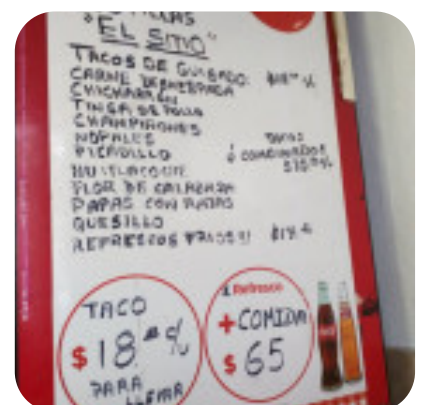 "EL SITIO"
TACOS DE GUISADO
CARNE DESHEBRADA
CHICHARRÓN
TINGA DE POLLO
CHAMPIÑONES
NOPALES
PICADILLO
TACOS
ó COMBINADOS
HUITLACOCHE
FLOR DE CALABAZA
PAPAS CON RAJAS
QUESILLO
REFRESCOS
TACO
$18.00 c/
PARA
LLEVAR
1 Refresco
+COMIDA
$65